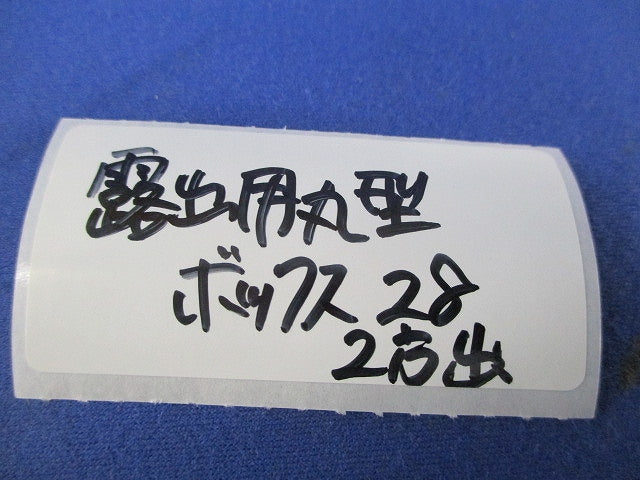 露出用丸型
ボックス 28
2方出